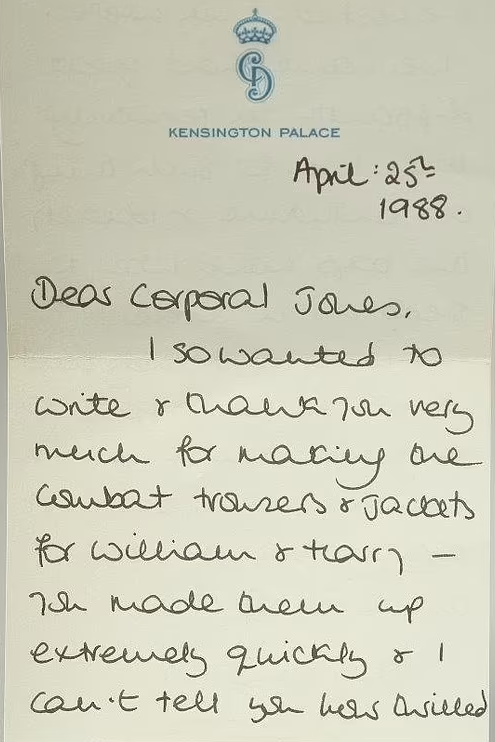 KENSINGTON PALACE
April: 25th
1988.
Dear Corporal Jones,
I so wanted to
write & thank you very
much for making the
combat trousers & jackets
for William & Harry –
you made them up
extremely quickly & I
can't tell you how thrilled